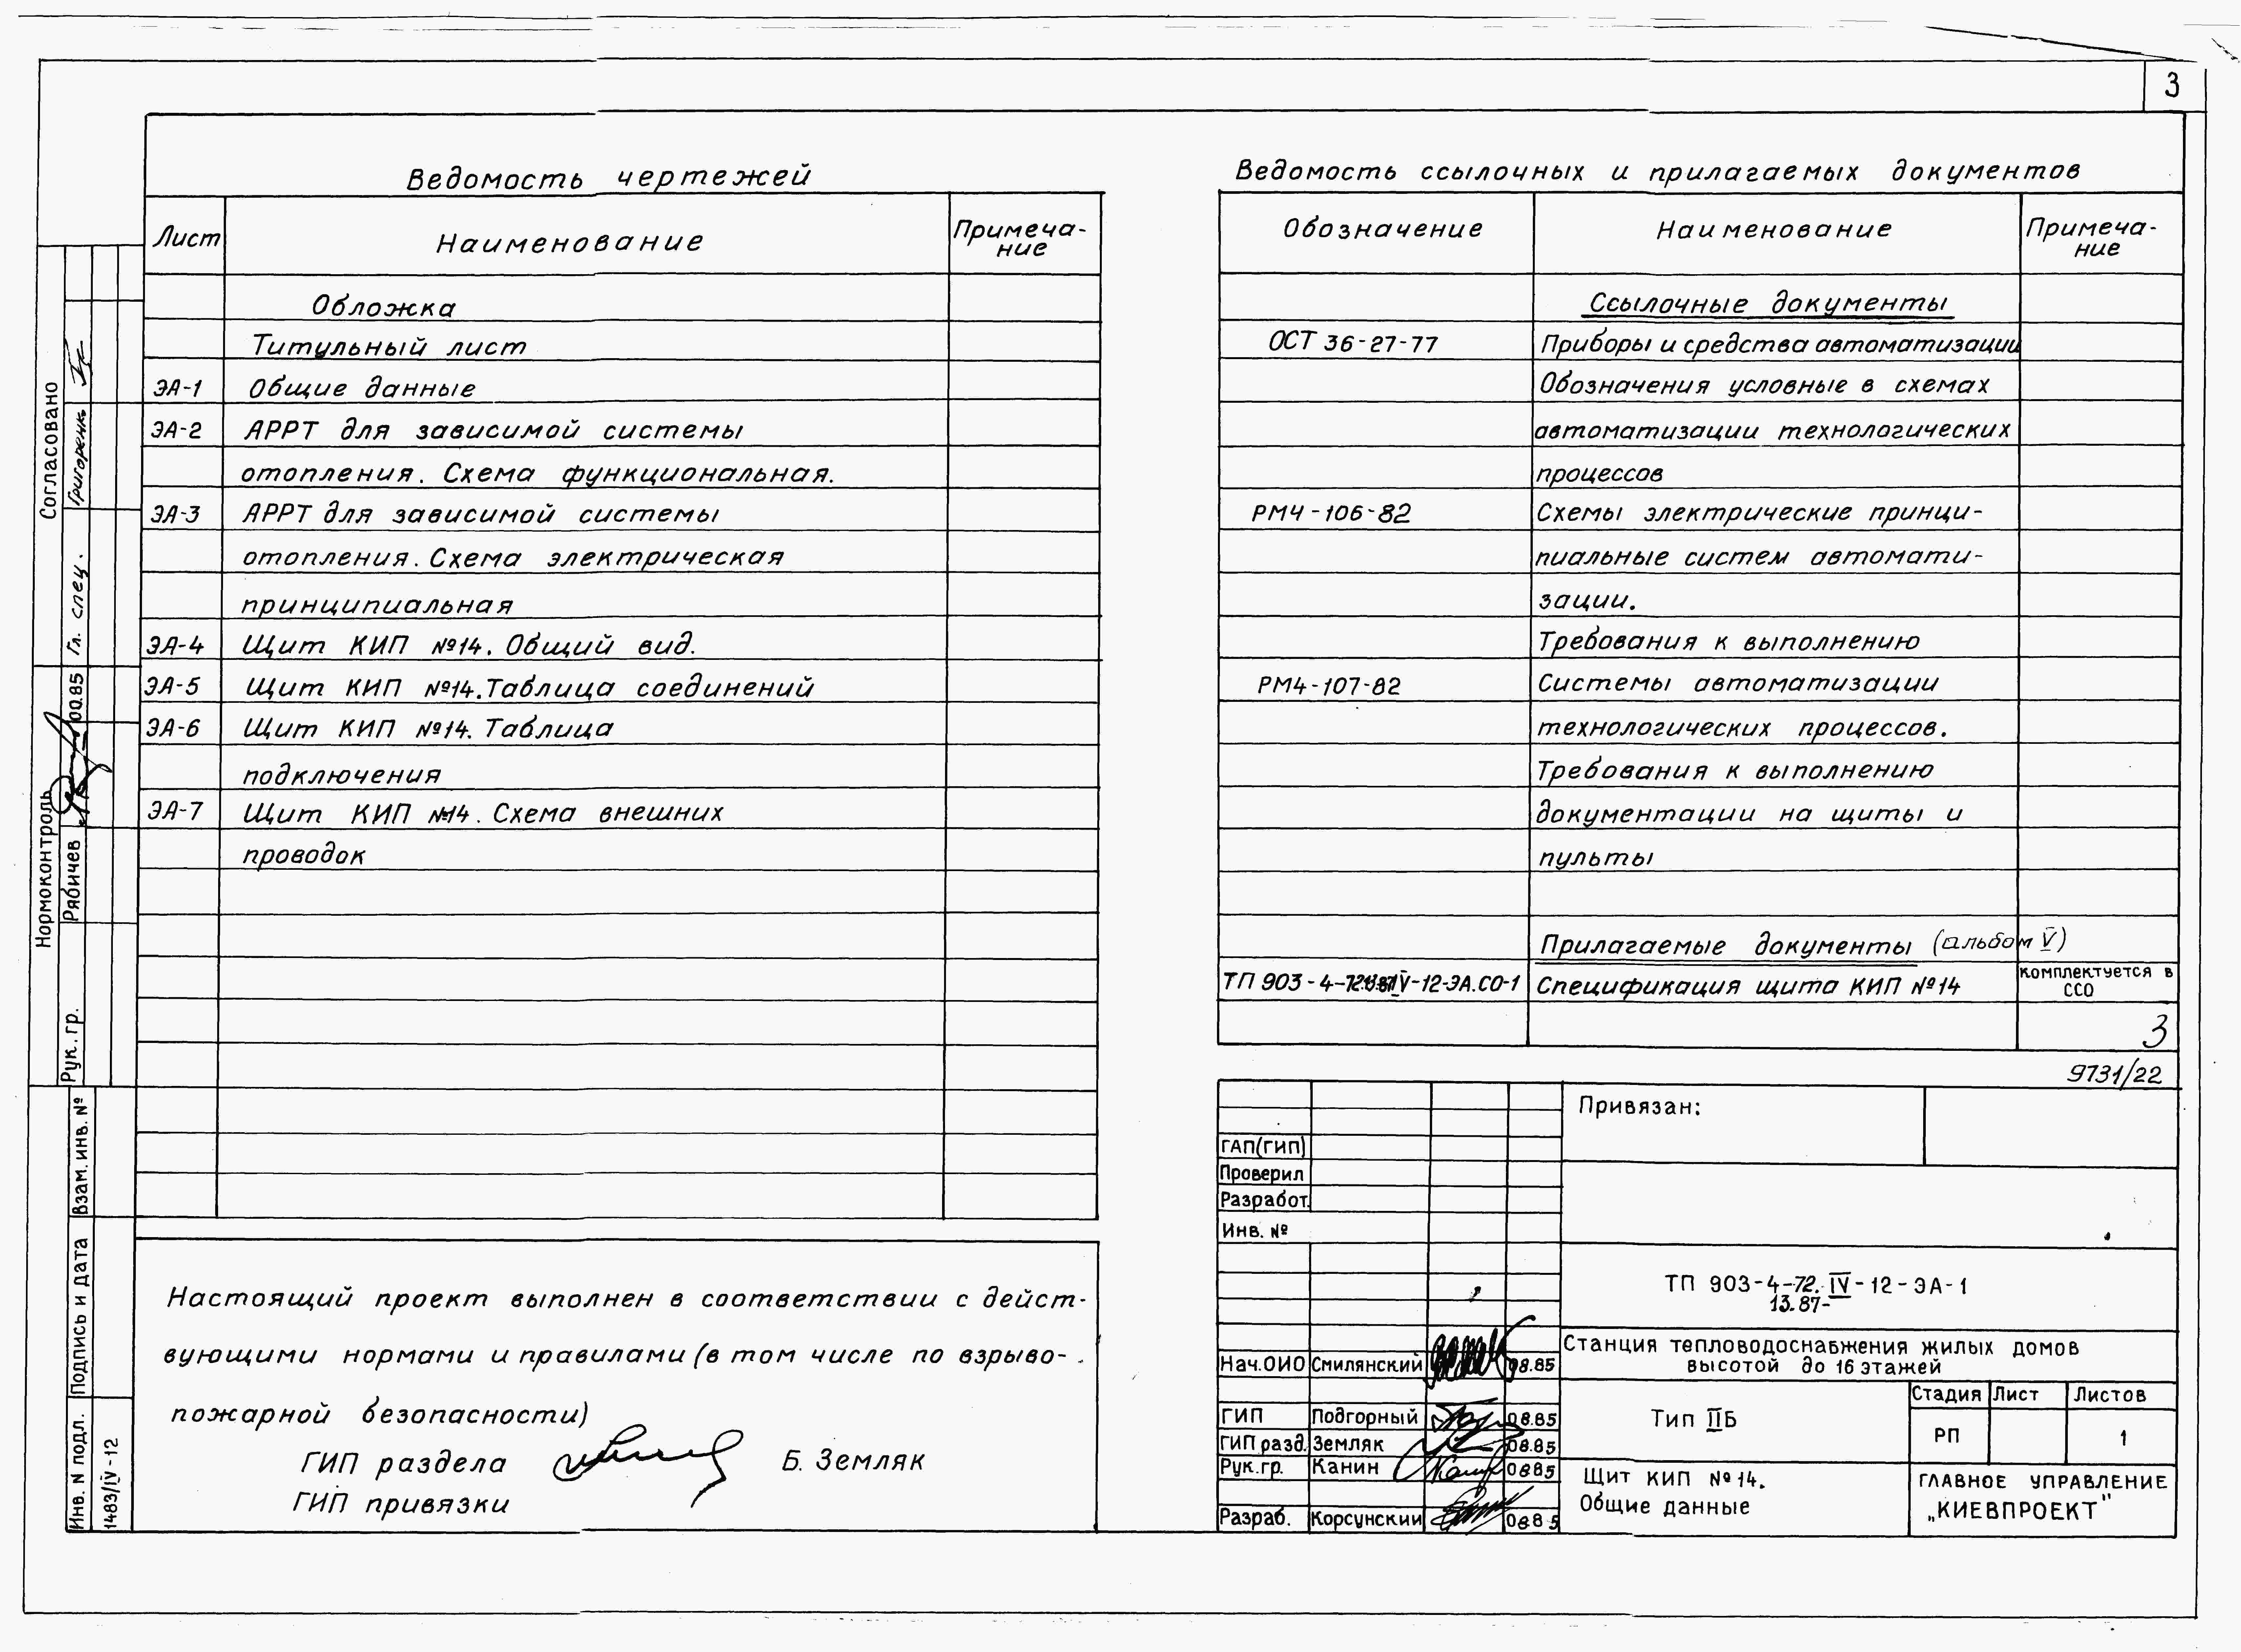 3
Ведомость чертежей
Лист Наименование Примеча-
ние
Обложка
Титульный лист
ЭА-1 Общие данные
ЭА-2 АРРТ для зависимой системы
отопления. Схема функциональная.
ЭА-3 АРРТ для зависимой системы
отопления. Схема электрическая
принципиальная
ЭА-4 Щит КИП №14. Общий вид.
ЭА-5 Щит КИП №14. Таблица соединений
ЭА-6 Щит КИП №14. Таблица
подключения
ЭА-7 Щит КИП №14. Схема внешних
проводок
Ведомость ссылочных и прилагаемых документов
Обозначение Наименование Примеча-
ние
Ссылочные документы
ОСТ 36-27-77 Приборы и средства автоматизации
Обозначения условные в схемах
автоматизации технологических
процессов
РМ4-106-82 Схемы электрические принци-
пиальные систем автомати-
зации.
Требования к выполнению
РМ4-107-82 Системы автоматизации
технологических процессов.
Требования к выполнению
документации на щиты и
пульты
Прилагаемые документы (альбом V)
ТП 903-4- -12-ЭА.СО-1 Спецификация щита КИП №14 комплектуется в
ССО
3
9731/22
Настоящий проект выполнен в соответствии с дейст-
вующими нормами и правилами (в том числе по взрыво-
пожарной безопасности)
ГИП раздела Б. Земляк
ГИП привязки
Привязан:
ГАП(ГИП)
Проверил
Разработ.
Инв. №
ТП 903-4-72. IV-12-ЭА-1
13.87-
Станция тепловодоснабжения жилых домов
высотой до 16 этажей
Нач.ОИО Смилянский 08.85
ГИП Подгорный 08.85
ГИП разд. Земляк 08.85
Рук.гр. Канин 0885
Разраб. Корсунский 0885
Тип IIБ
Стадия Лист Листов
РП 1
Щит КИП №14.
Общие данные
ГЛАВНОЕ УПРАВЛЕНИЕ
„КИЕВПРОЕКТ"
Согласовано
Гл. спец. Григоренк
Нормоконтроль
Рук. гр. Рябичев 00.85
Взам. инв. №
Подпись и дата
Инв. N подл.
1483/IV-12